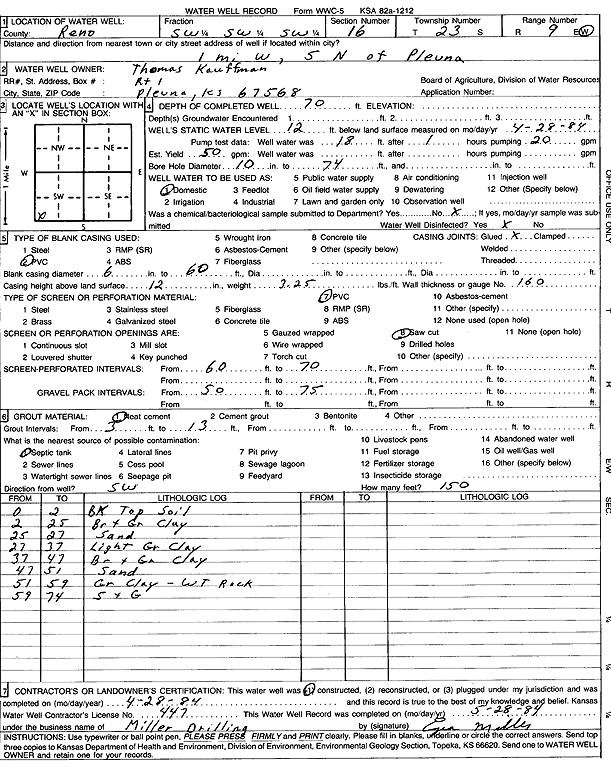 WATER WELL RECORD Form WWC-5 KSA 82a-1212
1 LOCATION OF WATER WELL: Fraction Section Number Township Number Range Number
County: Reno SW ¼ SW ¼ SW ¼ 16 T 23 S R 9 E(W)
Distance and direction from nearest town or city street address of well if located within city?
1 mi W, 5 N of Plevna
2 WATER WELL OWNER: Thomas Kauffman
RR#, St. Address, Box # : Rt 1 Board of Agriculture, Division of Water Resources
City, State, ZIP Code : Plevna, KS 67568 Application Number:
3 LOCATE WELL'S LOCATION WITH AN "X" IN SECTION BOX:
N
NW NE
W E
SW SE
X
S
1 Mile
4 DEPTH OF COMPLETED WELL 70 ft. ELEVATION:
Depth(s) Groundwater Encountered 1. ft. 2. ft. 3. ft.
WELL'S STATIC WATER LEVEL 12 ft. below land surface measured on mo/day/yr 4-28-84
Pump test data: Well water was 18 ft. after 1 hours pumping 20 gpm
Est. Yield 50 gpm: Well water was ft. after hours pumping gpm
Bore Hole Diameter 10 in. to 74 ft., and in. to ft.
WELL WATER TO BE USED AS: 5 Public water supply 8 Air conditioning 11 Injection well
1 Domestic 3 Feedlot 6 Oil field water supply 9 Dewatering 12 Other (Specify below)
2 Irrigation 4 Industrial 7 Lawn and garden only 10 Observation well
Was a chemical/bacteriological sample submitted to Department? Yes No X; If yes, mo/day/yr sample was submitted Water Well Disinfected? Yes X No
5 TYPE OF BLANK CASING USED: 5 Wrought iron 8 Concrete tile CASING JOINTS: Glued X Clamped
1 Steel 3 RMP (SR) 6 Asbestos-Cement 9 Other (specify below) Welded
2 PVC 4 ABS 7 Fiberglass Threaded
Blank casing diameter 6 in. to 60 ft., Dia in. to ft., Dia in. to ft.
Casing height above land surface 12 in., weight 3.25 lbs./ft. Wall thickness or gauge No. 160
TYPE OF SCREEN OR PERFORATION MATERIAL: 7 PVC 10 Asbestos-cement
1 Steel 3 Stainless steel 5 Fiberglass 8 RMP (SR) 11 Other (specify)
2 Brass 4 Galvanized steel 6 Concrete tile 9 ABS 12 None used (open hole)
SCREEN OR PERFORATION OPENINGS ARE: 5 Gauzed wrapped 8 Saw cut 11 None (open hole)
1 Continuous slot 3 Mill slot 6 Wire wrapped 9 Drilled holes
2 Louvered shutter 4 Key punched 7 Torch cut 10 Other (specify)
SCREEN-PERFORATED INTERVALS: From 60 ft. to 70 ft., From ft. to ft.
From ft. to ft., From ft. to ft.
GRAVEL PACK INTERVALS: From 50 ft. to 75 ft., From ft. to ft.
From ft. to ft., From ft. to ft.
6 GROUT MATERIAL: 1 Neat cement 2 Cement grout 3 Bentonite 4 Other
Grout Intervals: From 3 ft. to 13 ft., From ft. to ft., From ft. to ft.
What is the nearest source of possible contamination: 10 Livestock pens 14 Abandoned water well
1 Septic tank 4 Lateral lines 7 Pit privy 11 Fuel storage 15 Oil well/Gas well
2 Sewer lines 5 Cess pool 8 Sewage lagoon 12 Fertilizer storage 16 Other (specify below)
3 Watertight sewer lines 6 Seepage pit 9 Feedyard 13 Insecticide storage
Direction from well? SW How many feet? 150
FROM TO LITHOLOGIC LOG FROM TO LITHOLOGIC LOG
0 2 BK Top Soil
2 25 Br + Gr Clay
25 27 Sand
27 37 Light Gr Clay
37 47 Br + Gr Clay
47 51 Sand
51 59 Gr Clay - WT Rock
59 74 S + G
7 CONTRACTOR'S OR LANDOWNER'S CERTIFICATION: This water well was (1) constructed, (2) reconstructed, or (3) plugged under my jurisdiction and was
completed on (mo/day/year) 4-28-84 and this record is true to the best of my knowledge and belief. Kansas
Water Well Contractor's License No. 447 This Water Well Record was completed on (mo/day/yr) 5-28-84
under the business name of Miller Drilling by (signature)
INSTRUCTIONS: Use typewriter or ball point pen, PLEASE PRESS FIRMLY and PRINT clearly. Please fill in blanks, underline or circle the correct answers. Send top
three copies to Kansas Department of Health and Environment, Division of Environment, Environmental Geology Section, Topeka, KS 66620. Send one to WATER WELL
OWNER and retain one for your records.
OFFICE USE ONLY
T
R
E/W
SEC
¼
¼
¼